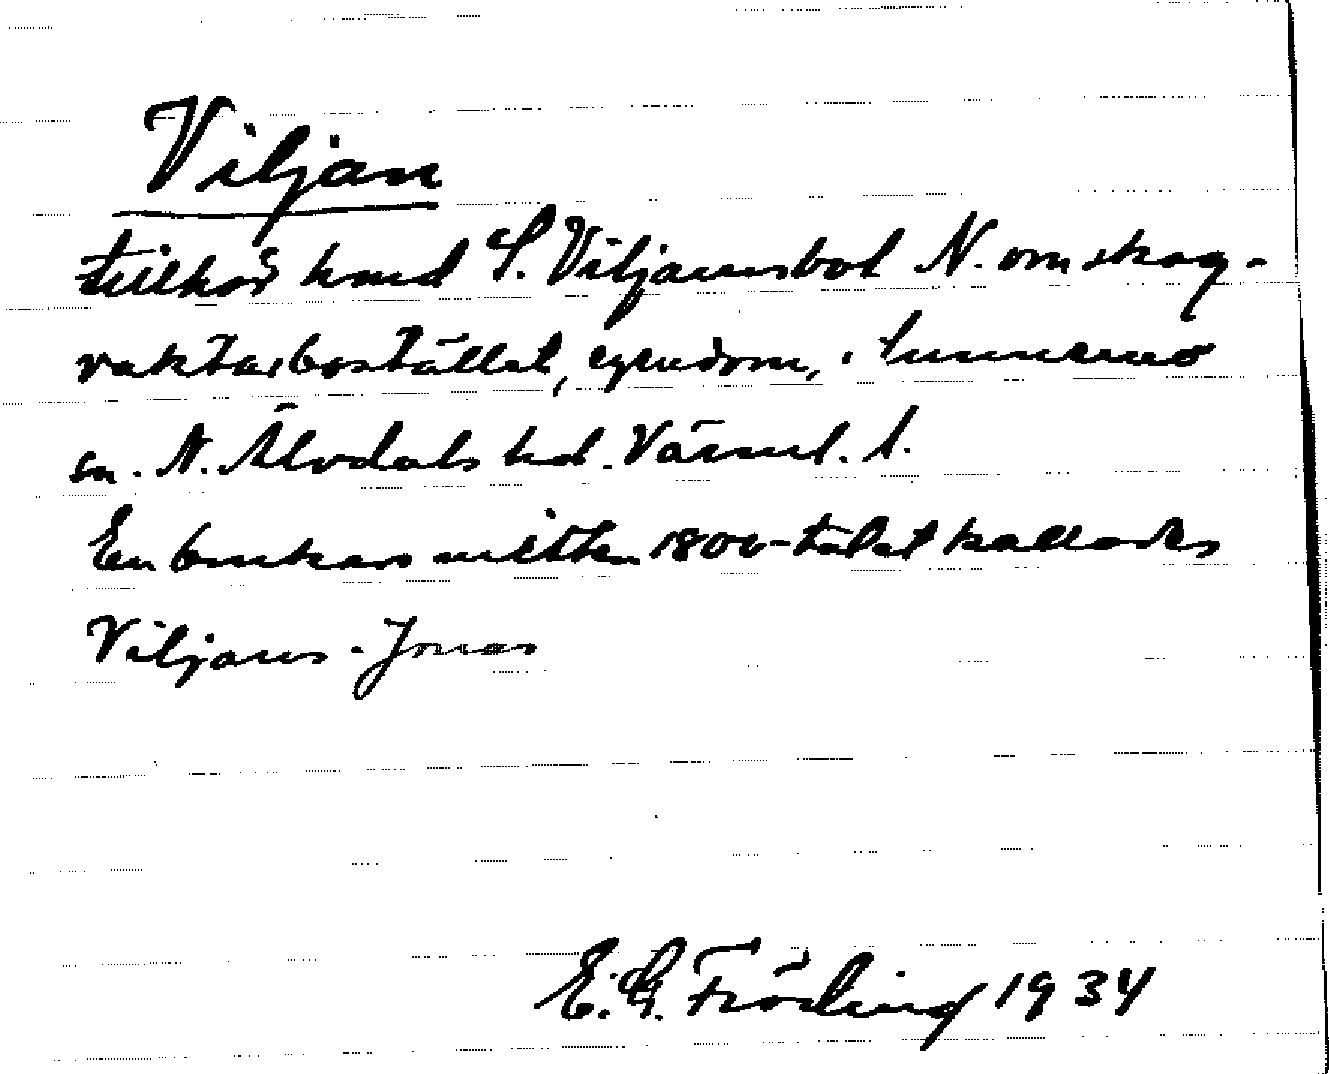 Viljan
tillhör hmd S. Viljansbol N. om skog-
vaktarbostället, egendom, i Sunnemo
sn. N. Älvdals hd. Värml. l.
En brukare mitten 1800-talet kallades
Viljans-Jonas
E. G. Fröding 1934